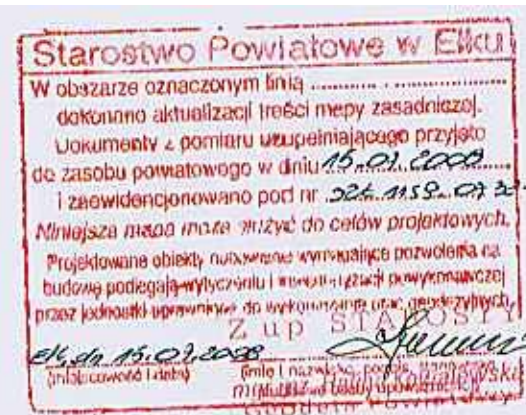 Starostwo Powiatowe w Ełku
W obszarze oznaczonym linią ..................
dokonano aktualizacji treści mapy zasadniczej.
Dokumenty z pomiaru uzupełniającego przyjęto
do zasobu powiatowego w dniu 15.01.2008
i zaewidencjonowano pod nr
Niniejsza mapa może służyć do celów projektowych.
Projektowane obiekty budowlane wymagające pozwolenia na
budowę podlegają wytyczeniu i inwentaryzacji powykonawczej
przez jednostki uprawnione do wykonywania prac geodezyjnych.
Z up STAROSTY
Ełk, dn 15.01.2008
(miejscowość i data) (imię i nazwisko, podpis
Geodeta Powiatowy